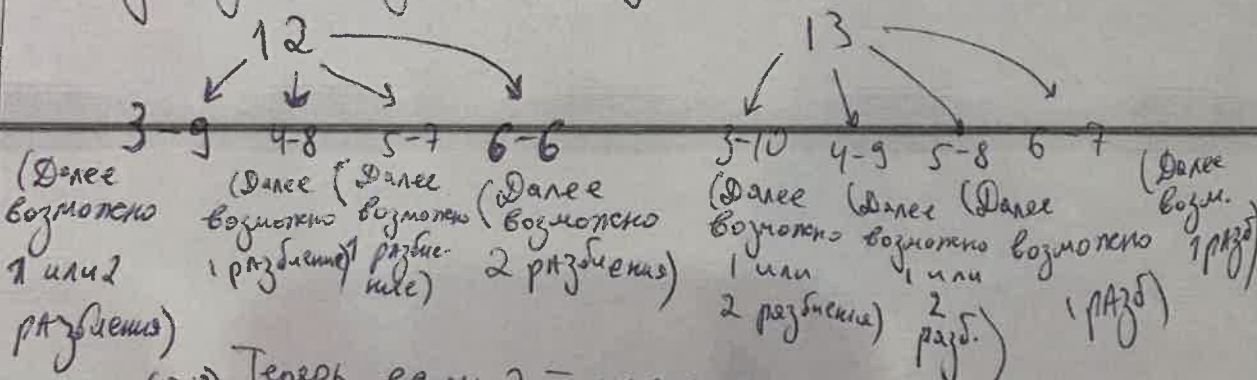 12
13
3-9 4-8 5-7 6-6
3-10 4-9 5-8 6-7
(Далее возможно 1 или 2 разбиения)
(Далее возможно 1 разбиение)
(Далее возможно 1 разбиение)
(Далее возможно 2 разбиения)
(Далее возможно 1 или 2 разбиения)
(Далее возможно 1 или 2 разб.)
(Далее возможно 1 разб)
(Далее возм. 1 разб)
Теперь